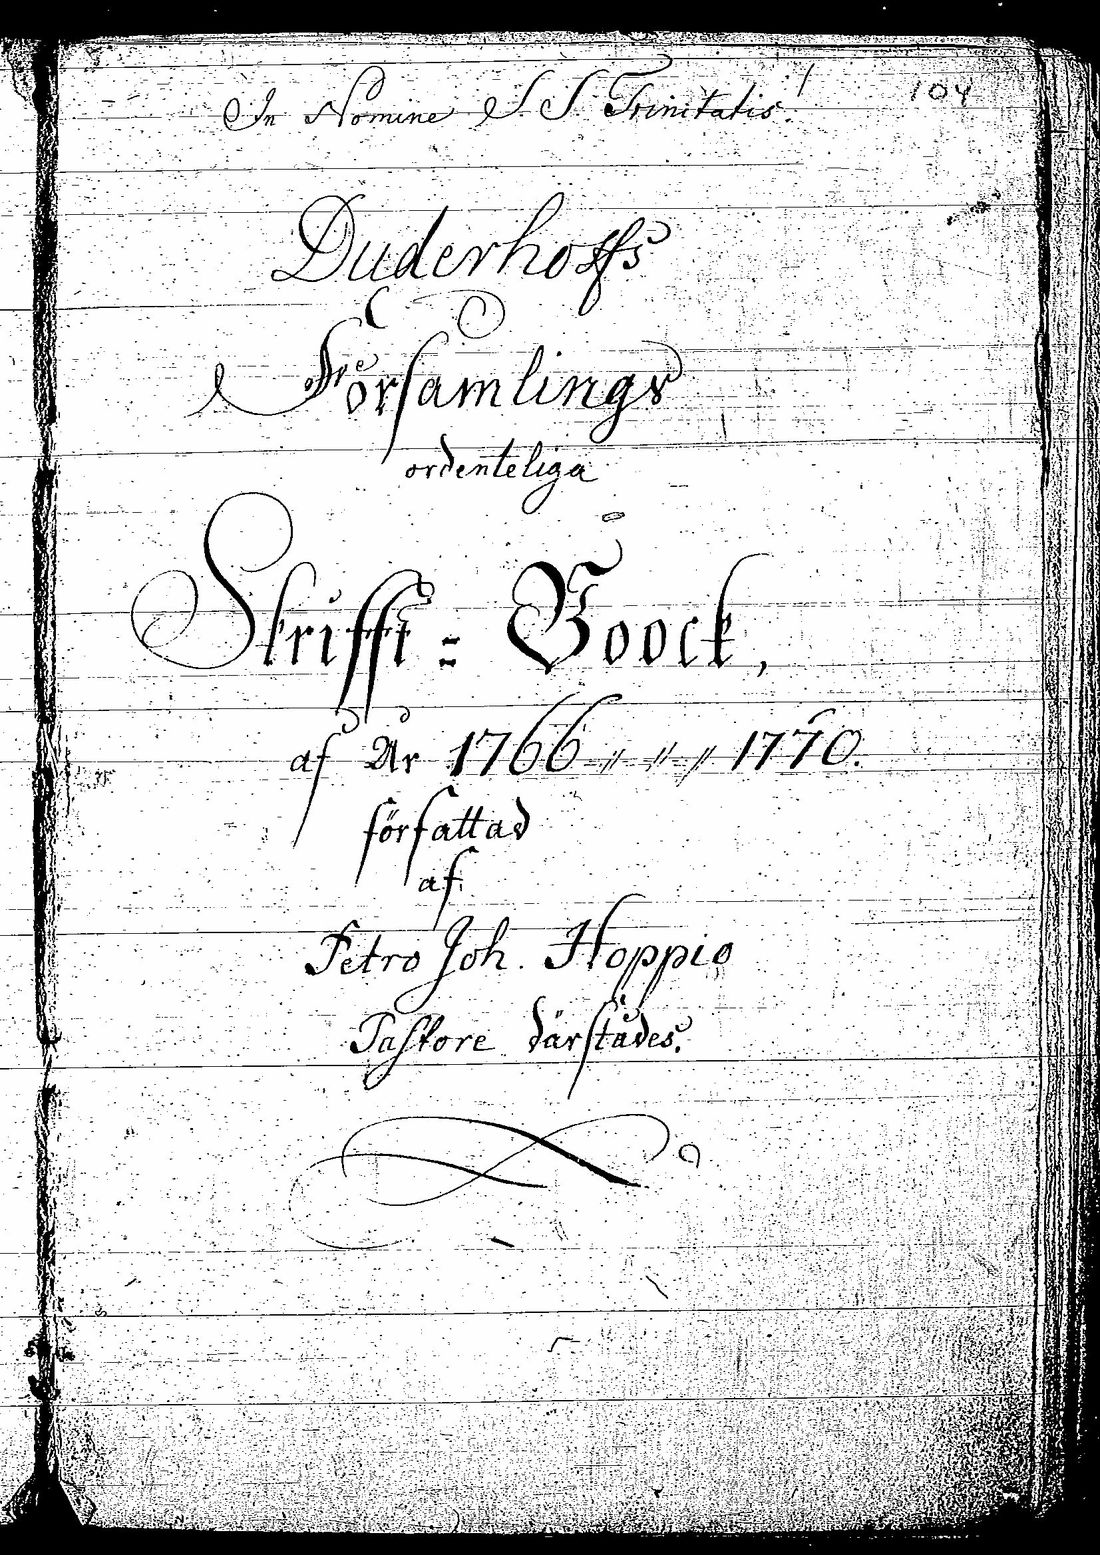 In Nomine S. S. Trinitatis!
104
Duderhoffs
Församlings
ordenteliga
Skrifft = Boock,
af År 1766 〃 〃 〃 1770.
författad
af
Petro Joh. Hoppio
Pastore därstädes.